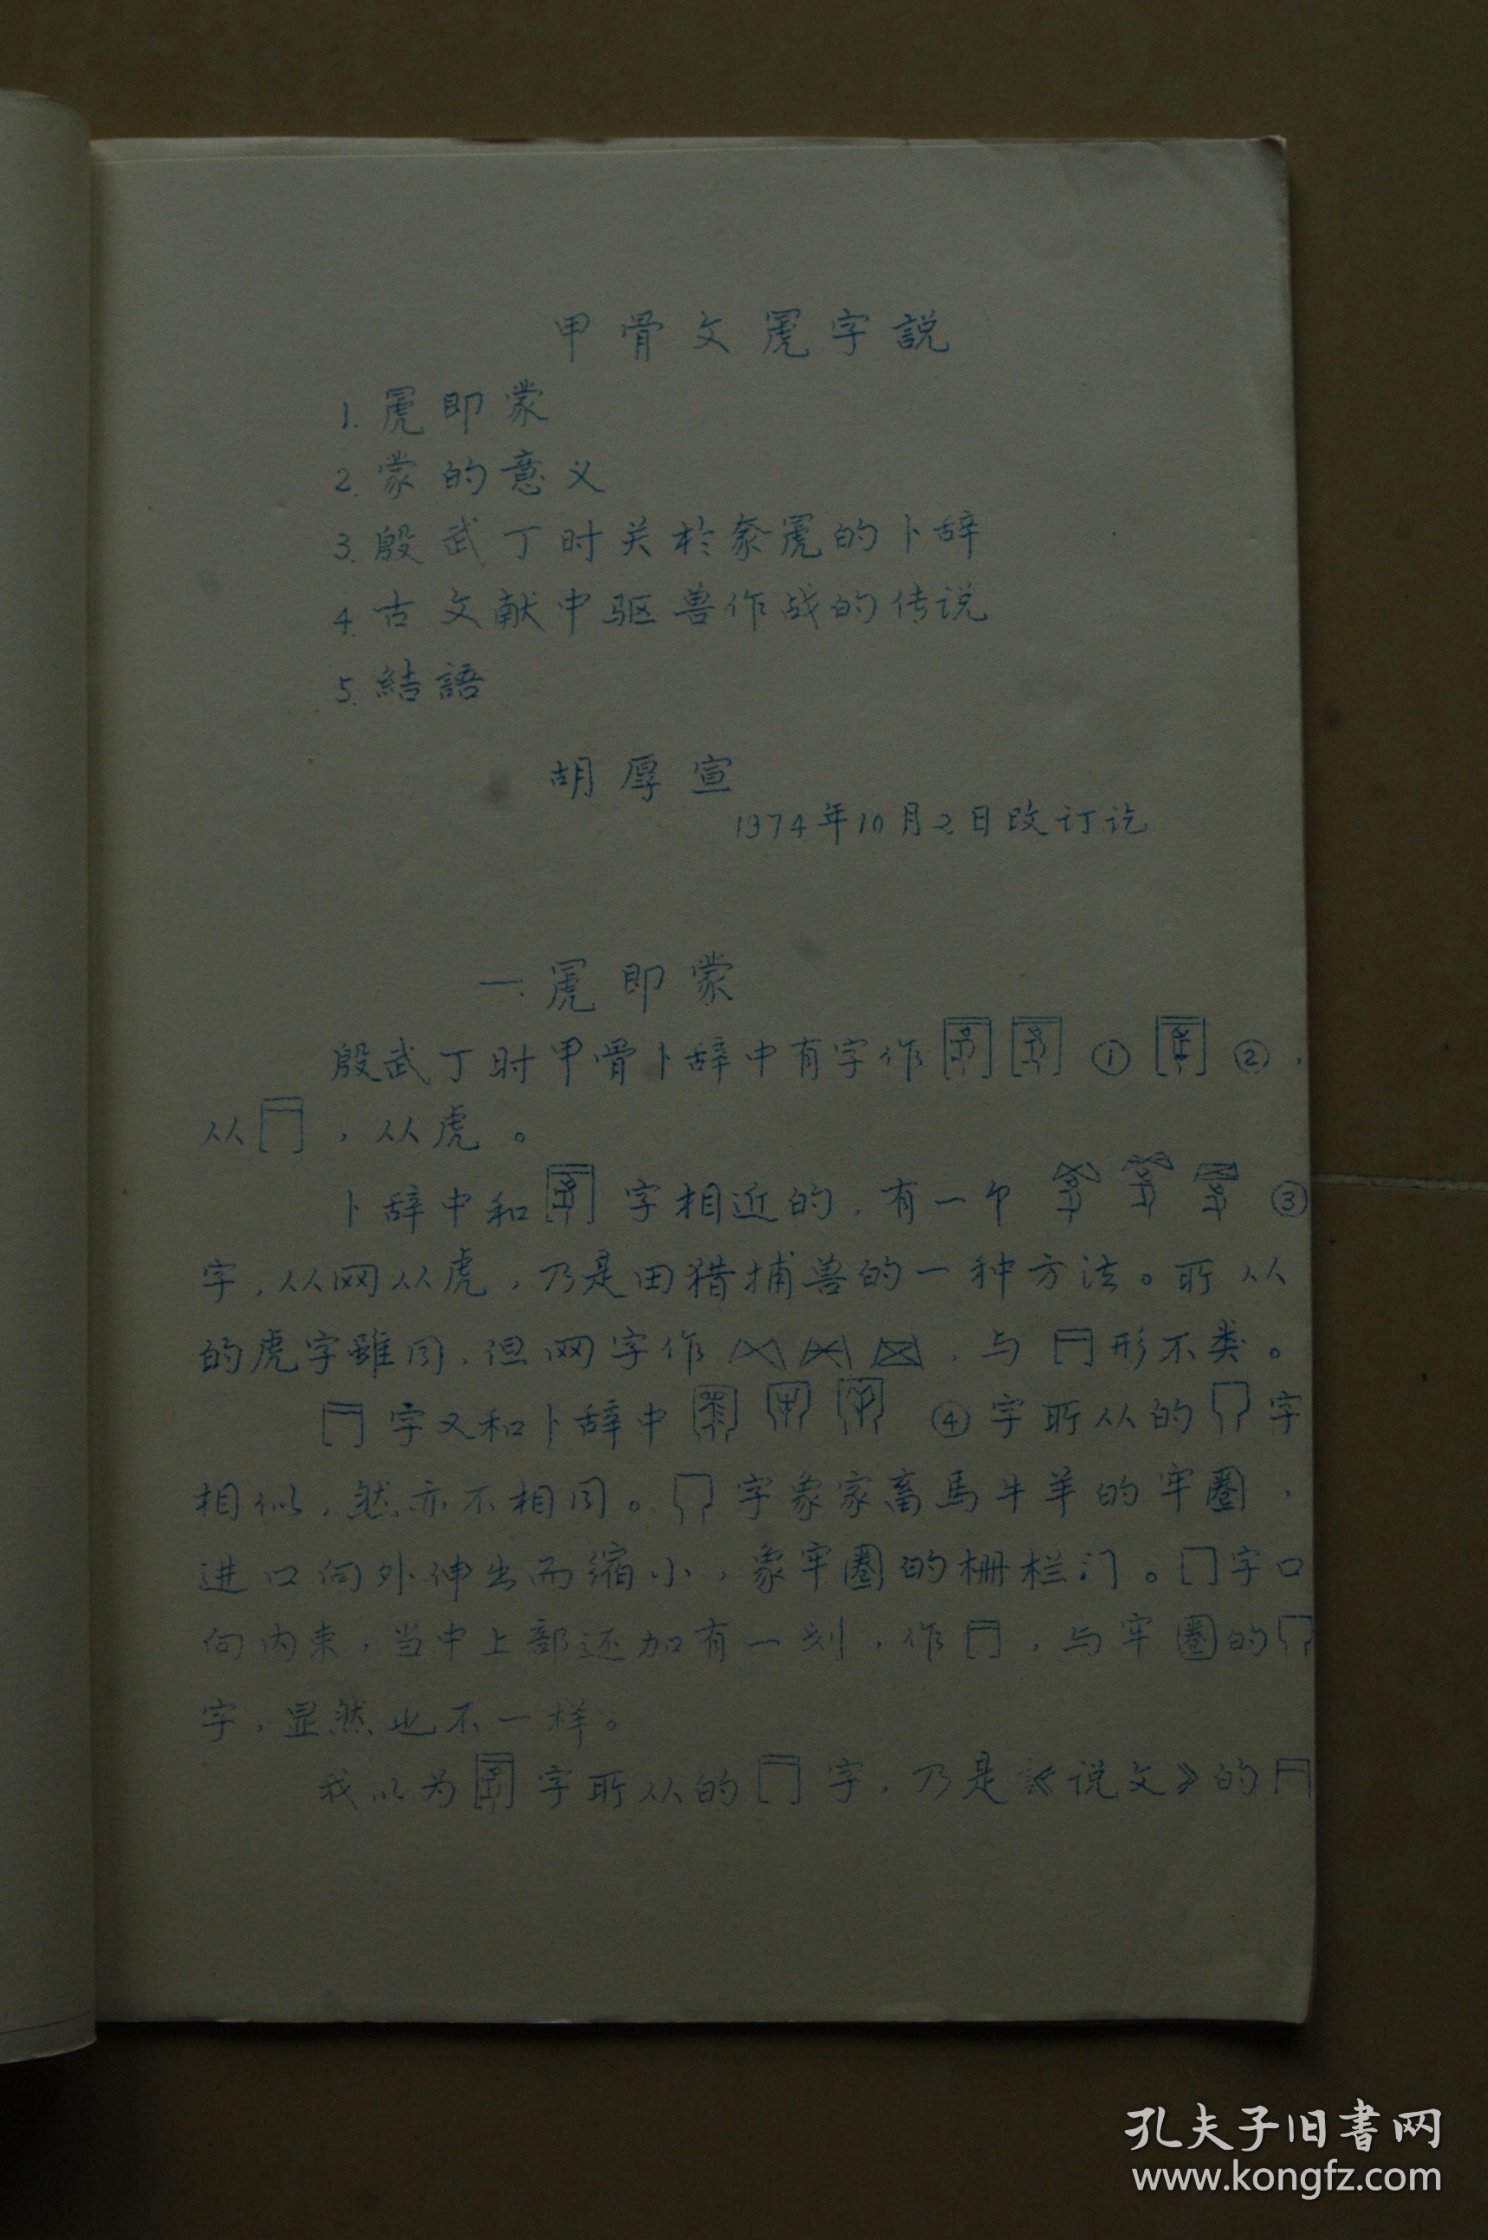 甲骨文字說
1. 即蒙
2. 蒙的意义
3. 殷武丁时关於的卜辞
4. 古文献中驱兽作战的传说
5. 結語
胡厚宣
1974年10月2日改订讫
一. 即蒙
殷武丁时甲骨卜辞中有字作 ① ②,
从冃,从虎。
卜辞中和字相近的,有一个 ③
字,从网从虎,乃是田猎捕兽的一种方法。所从
的虎字雖同,但网字作,与冃形不类。
冃字又和卜辞中 ④字所从的字
相似,然亦不相同。字象家畜馬牛羊的牢圈,
进口向外伸出而缩小,象牢圈的栅栏门。冂字口
向内束,当中上部还加有一划,作冃,与牢圈的
字,显然也不一样。
我以为字所从的冃字,乃是《说文》的冃
孔夫子旧書网
www.kongfz.com